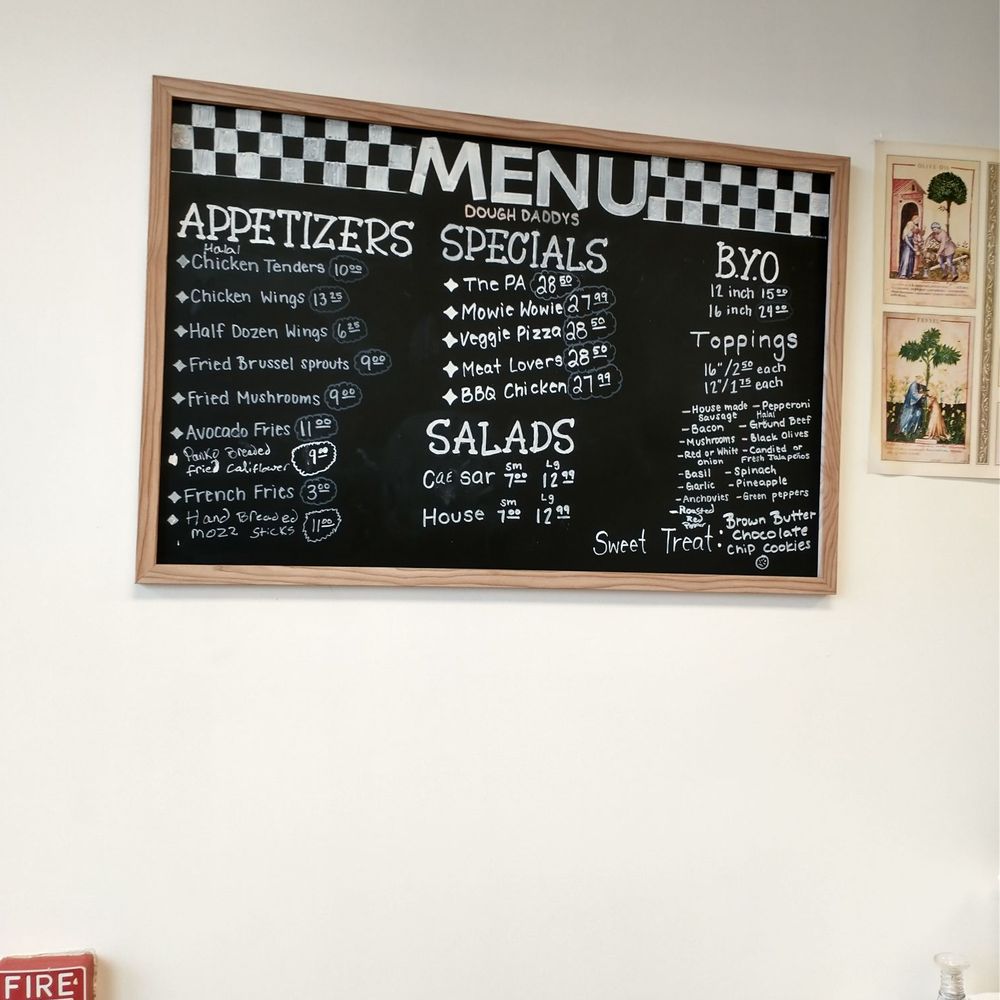 MENU
DOUGH DADDYS
APPETIZERS
Halal
Chicken Tenders 10.00
Chicken Wings 13.25
Half Dozen Wings 6.25
Fried Brussel sprouts 9.00
Fried Mushrooms 9.00
Avocado Fries 11.00
Panko Breaded
fried Califlower 9.00
French Fries 3.00
Hand Breaded
mozz sticks 11.00
SPECIALS
The PA 28.50
Mowie Wowie 27.99
Veggie Pizza 28.50
Meat Lovers 28.50
BBQ Chicken 27.99
SALADS
sm Lg
Caesar 7.00 12.99
sm Lg
House 7.00 12.99
B.Y.O
12 inch 15.00
16 inch 24.00
Toppings
16"/2.50 each
12"/1.75 each
- House made Sausage
- Bacon
- Mushrooms
- Red or White onion
- Basil
- Garlic
- Anchovies
- Roasted Red
- Pepperoni
- Halal Ground Beef
- Black Olives
- Candied or Fresh Jalapeños
- Spinach
- Pineapple
- Green peppers
Sweet Treat: Brown Butter
Chocolate
chip cookies
OLIVE OIL
FENNEL
FIRE